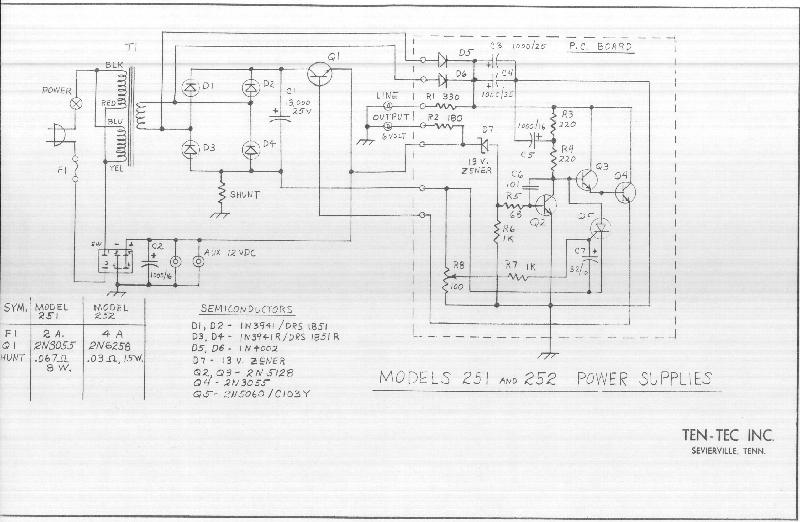 T1
BLK
POWER
RED
BLU
YEL
F1
Q1
D1
D2
D3
D4
C1
3,000
25V
SHUNT
SW
C2
1000/16
AUX 12 VDC
P.C. BOARD
D5
C3 1000/25
D6
C4
LINE
OUTPUT
6 VOLT
R1 330
R2 180
D7
13 V.
ZENER
1000/16
C5
R3
220
R4
220
C6
.01
R5
68
Q2
Q3
Q4
R6
1K
R7 1K
R8
100
C7
SYM. MODEL 251 MODEL 252
F1 2 A. 4 A
Q1 2N3055 2N6258
HUNT .067Ω 8 W. .03Ω, 15W.
SEMICONDUCTORS
D1, D2 - IN3941/DRS 1851
D3, D4 - IN3941R/DRS 1851R
D5, D6 - IN4002
D7 - 13 V. ZENER
Q2, Q3 - 2N5128
Q4 - 2N3055
Q5 - 2N5060/C103Y
MODELS 251 AND 252 POWER SUPPLIES
TEN-TEC INC.
SEVIERVILLE, TENN.